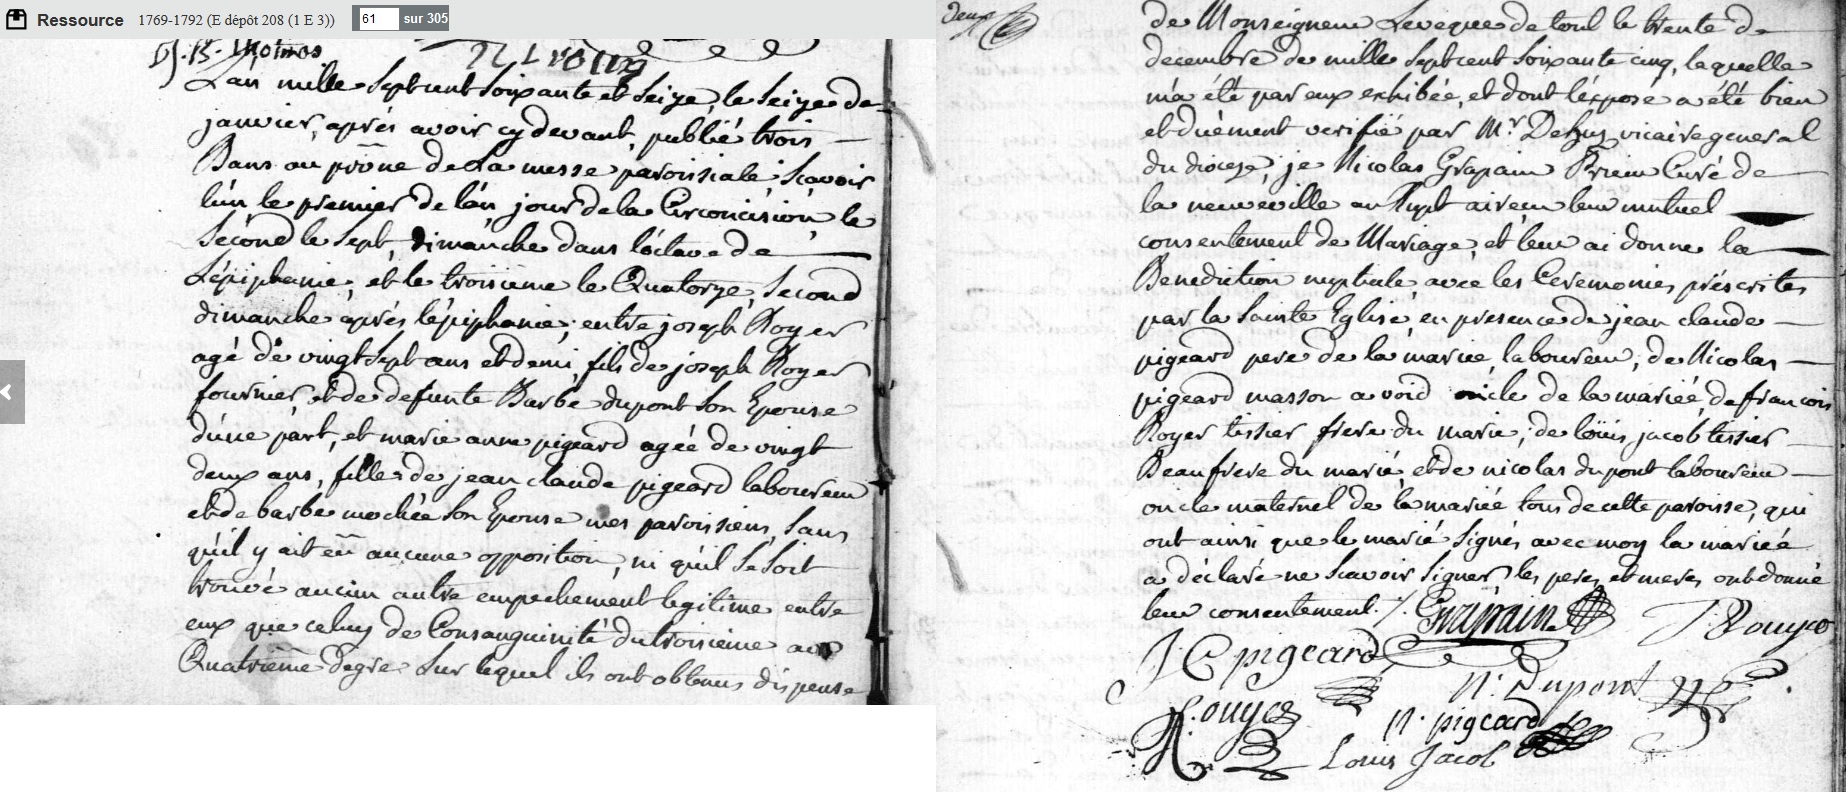 Ressource 1769-1792 (E dépôt 208 (1 E 3)) 61 sur 305
Lan mille sept cent soixante et seize, le seize de
janvier, aprés avoir cy devant, publié trois
Bans au prône de La messe paroissiale, sçavoir
lún le premier de lán jour de la Circoncision, le
second le sept, dimanche dans l'octave de
Lépiphanie, et le troisieme le Quatorze, second
dimanche aprés lépiphanie; entre joseph Royer
agé de vingt sept ans et demi, fils de joseph Royer
fournier, et de defunte Barbe dupont son Epouse
dúne part, et marie anne pigeard agée de vingt
deux ans, fille de jean claude pigeard laboureur
et de barbe mochée son Epouse mes paroissiens, sans
qu'il y ait eû aucune opposition, ni qu'il se soit
trouvé aucun autre empechement legitime entre
eux que celuy de Consanguinité du troisieme au
Quatriême degre sur lequel ils ont obtenus dispense
deux
de Monseigneur Leveque de toul le trente de
decembre de mille sept cent soixante cinq, laquelle
m'a été par eux exhibée, et dont léxposé a été bien
et duement verifié par Mr vicaire general
du diocese, je Nicolas Grapain Curé de
la neuveville au Rupt ai recu leur mutuel
consentement de Mariage, et leur ai donne la
Benediction nuptiale avec les Ceremonies préscrites
par la sainte Eglise en presence de jean claude
pigeard pere de la mariée laboureur, de Nicolas
pigeard masson a void oncle de la mariée, de francois
Royer tissier frere du marié; de loüis jacob tissier
Beaufrere du marié et de nicolas dupont laboureur
oncle maternel de la mariée tous de cette paroisse, qui
ont ainsi que le marié signés avec moy la mariée
a déclaré ne scavoir signer, les peres et meres ont donné
leur consentement. /.
Grapain
J C pigeard
N. Dupont
N. pigeard
Louis Jacob